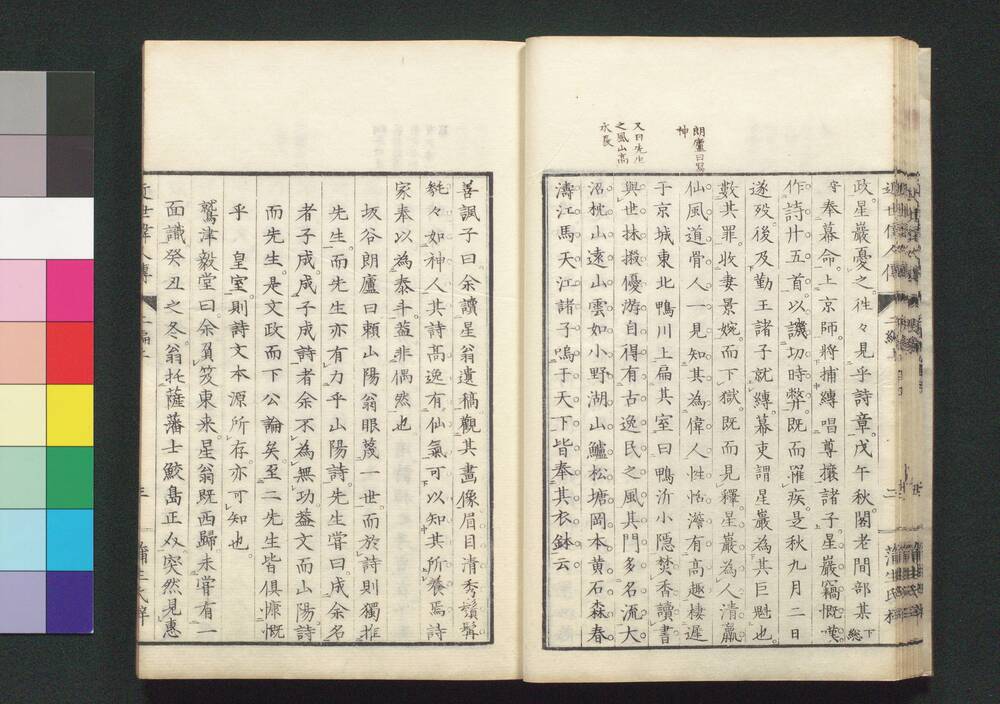 朗廬曰寫
神
又曰先生
之風山高
水長
政星巖憂之往々見乎詩章戊午秋閣老間部某
下総
守奉幕命上京師將捕縛唱尊攘諸子星巖竊慨嘆
作詩廿五首以譏切時弊既而罹疾是秋九月二日
遂歿後及勤王諸子就縛幕吏謂星巖為其巨魁也
數其罪收妻景婉而下獄既而見釋星巖為人清羸
仙風道骨人一見知其為偉人性恬澹有高趣棲遲
于京城東北鴨川上扁其室曰鴨沂小隱焚香讀書
與世抹摋優游自得有古逸民之風其門多名流大
沼枕山遠山雲如小野湖山鱸松塘岡本黄石森春
濤江馬天江諸子鳴于天下皆奉其衣鉢云
善諷子曰余讀星翁遺稿觀其畫像眉目清秀鬚髯
毿々如神人其詩高逸有仙氣可以知其所養焉詩
家奉以為泰斗蓋非偶然也
坂谷朗廬曰頼山陽翁眼蔑一世而於詩則獨推
先生而先生亦有力乎山陽詩先生嘗曰成余名
者子成成子成詩者余不為無功蓋文而山陽詩
而先生是文政而下公論矣至二先生皆俱慷慨
乎皇室則詩文本源所存亦可知也
鷲津毅堂曰余負笈東来星翁既西歸未嘗有一
面識癸丑之冬翁托薩藩士鮫島正人突然見惠
近世偉人傳
二編上
三
蒲生氏梓